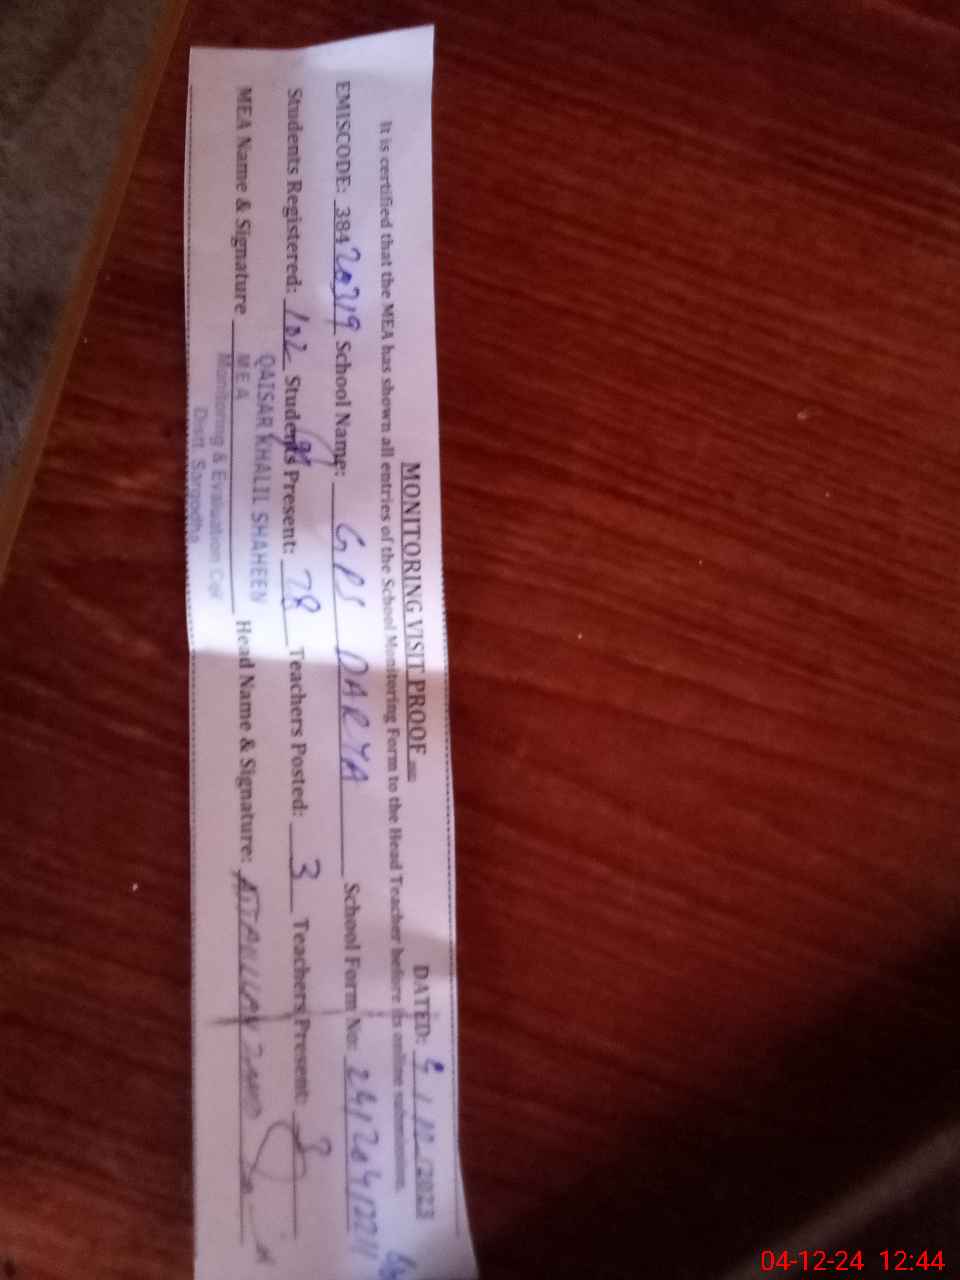 MONITORING VISIT PROOF
DATED: 4/12/2023
It is certified that the MEA has shown all entries of the School Monitoring Form to the Head Teacher before its online submission.
EMISCODE: 38420319 School Name: GPS DARYA School Form No:
Students Registered: 102 Students Present: 78 Teachers Posted: 3 Teachers Present: 3
MEA Name & Signature Head Name & Signature:
QAISAR KHALIL SHAHEEN
MEA
Monitoring & Evaluation Cell
Distt. Sargodha
04-12-24 12:44